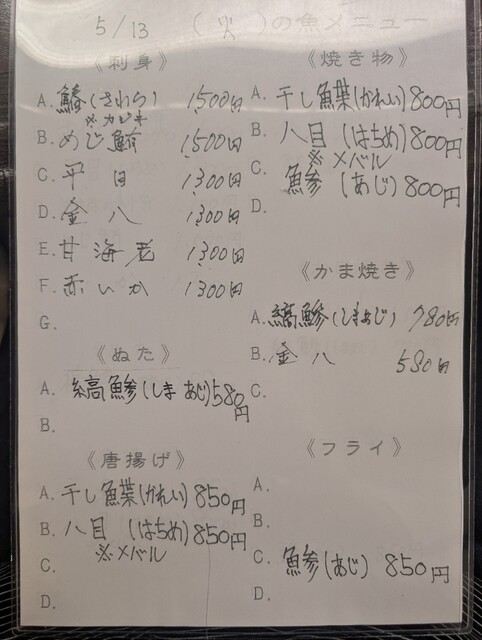 5/13 (火)の魚メニュー
《刺身》
A. 鰆(さわら) 1,500円
※カジキ
B. めじ鮪 1,500円
C. 平目 1,300円
D. 金八 1,300円
E. 甘海老 1,300円
F. 赤いか 1300円
G.
《ぬた》
A. 縞鰺(しまあじ)580円
B.
《唐揚げ》
A. 干し鰈(かれい)850円
B. 八目(はちめ)850円
※メバル
C.
D.
《焼き物》
A. 干し鰈(かれい)800円
B. 八目(はちめ)800円
※メバル
C. 鰺(あじ)800円
D.
《かま焼き》
A. 縞鰺(しまあじ) 780円
B. 金八 580円
C.
《フライ》
A.
B.
C. 鰺(あじ) 850円
D.